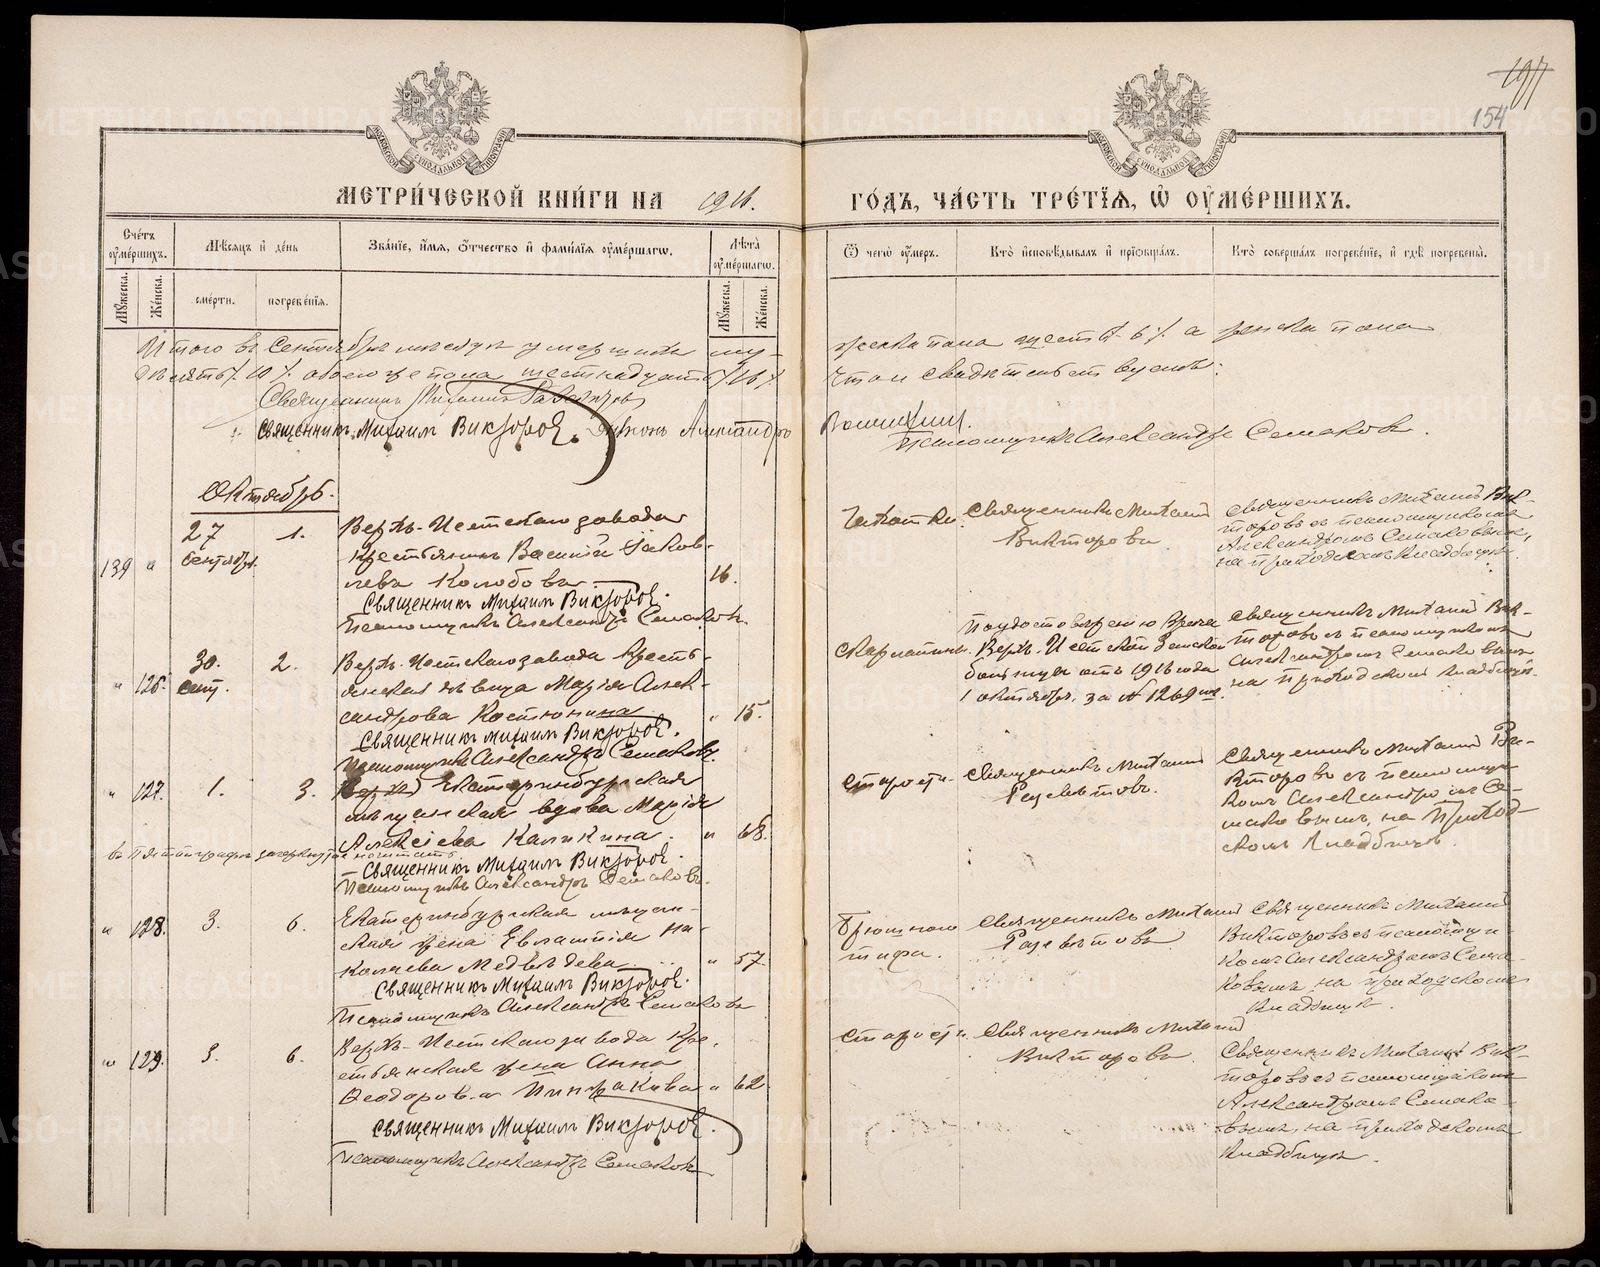 197
154
МЕТРИ́ЧЕСКОЙ КНИ́ГИ НА 1916. ГО́ДЪ, ЧА́СТЬ ТРЕ́ТІЯ, Ѡ ОУМЕ́РШИХЪ.
Сче́тъ оуме́ршихъ.
Мꙋ́жеска.
Же́нска.
Мѣ́сяцъ и де́нь
сме́рти.
погребе́нїѧ.
Зва́нїе, и́мѧ, ѻ́тчество и фами́лїѧ оуме́ршагѡ.
Лѣ́та оуме́ршагѡ.
Мꙋ́жеска.
Же́нска.
Ѿ чегѡ̀ оу́меръ.
Кто̀ и҆сповѣ́дывалъ и҆ прїѡбща́лъ.
Кто̀ соверша́лъ погребе́нїе, и҆ гдѣ̀ погребены̀.
Итого въ Сентябрѣ мѣсяцѣ умершихъ му-
жеска пола шесть /6/ а женска пола
десять /10/ обоего же пола шестнадцать /16/
что и свидѣтельствуемъ:
Священникъ Михаилъ
Священникъ Михаилъ Викторовъ. Діаконъ Александръ
Псаломщикъ Александръ Семаковъ.
Октябрь.
139 " 27 Сентября. 1.
Верхъ-Исетскаго завода
крестьянинъ Василій Яков-
левъ Колобовъ.
16.
Священникъ Михаилъ Викторовъ.
Псаломщикъ Александръ Семаковъ.
Чахотки.
Священникъ Михаилъ
Викторовъ
Священникъ Михаилъ Вик-
торовъ съ псаломщикомъ
Александромъ Семаковымъ,
на приходскомъ кладбищѣ.
" 126. 30. Сент. 2.
Верхъ-Исетскаго завода кресть-
янская дѣвица Марія Алек-
сандрова Костюнина
" 15.
Священникъ Михаилъ Викторовъ.
Псаломщикъ Александръ Семаковъ.
Скарлатины.
По удостовѣренію Врача
Верхъ-Исетской Земской
больницы отъ 1916 года
1 октября, за № 1269мъ.
Священникъ Михаилъ Вик-
торовъ съ псаломщикомъ
Александромъ Семаковымъ
на приходскомъ кладбищѣ.
" 127. 1. 3.
Екатеринбургская
мѣщанская вдова Марія
Алексіева Каликина.
" 68.
Священникъ Михаилъ Викторовъ.
Псаломщикъ Александръ Семаковъ.
Старости.
Священникъ Михаилъ
Разсвѣтовъ.
Священникъ Михаилъ Ви-
кторовъ съ псаломщи-
комъ Александромъ Се-
маковымъ, на приход-
скомъ кладбищѣ.
" 128. 3. 6.
Екатеринбургская мѣщан-
ская жена Евлампія Ни-
колаева Медвѣдева.
" 57.
Священникъ Михаилъ Викторовъ.
Псаломщикъ Александръ Семаковъ
Брюшного
тифа.
Священникъ Михаилъ
Разсвѣтовъ
Священникъ Михаилъ
Викторовъ съ псаломщи-
комъ Александромъ Сема-
ковымъ на приходскомъ
кладбищѣ.
" 129. 3. 6.
Верхъ-Исетскаго завода кре-
стьянская жена Анна
Ѳеодорова
" 62
Священникъ Михаилъ Викторовъ.
Псаломщикъ Александръ Семаковъ
Старости.
Священникъ Михаилъ
Викторовъ.
Священникъ Михаилъ Вик-
торовъ съ псаломщикомъ
Александромъ Семако-
вымъ, на приходскомъ
кладбищѣ.